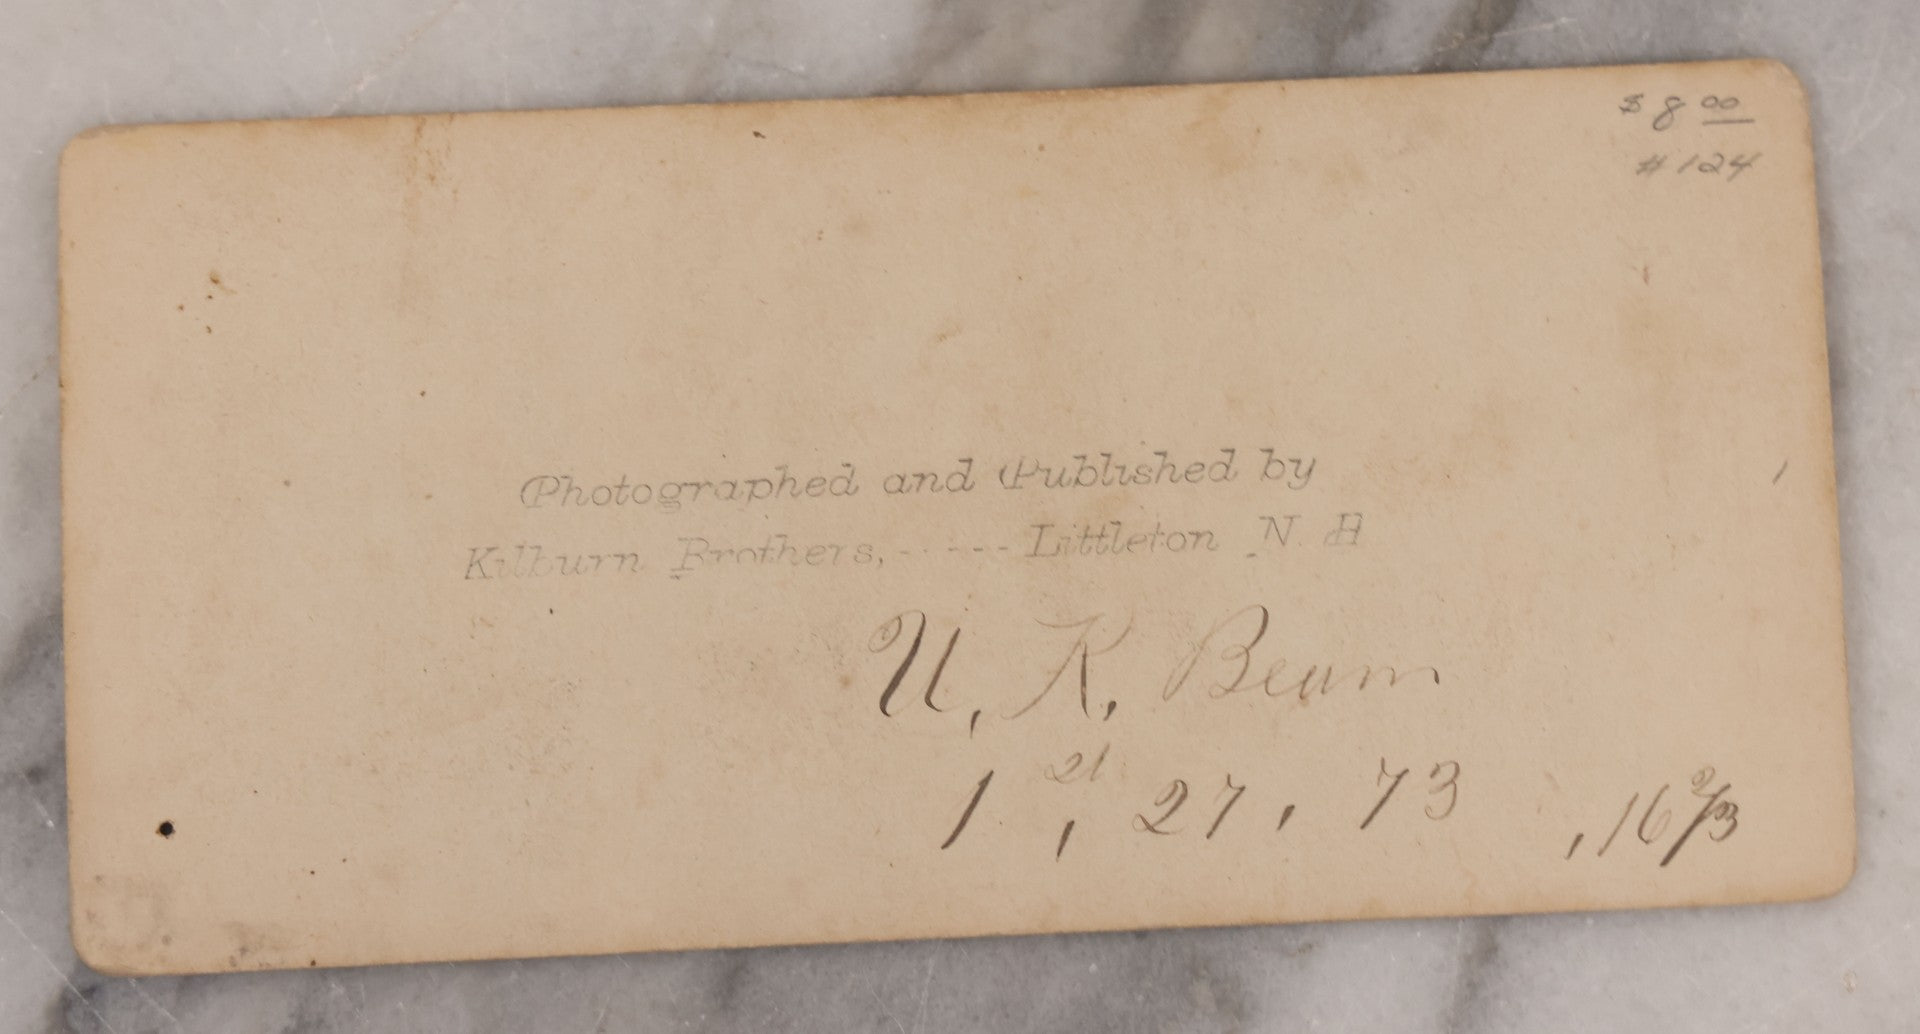 $8.00
#124
Photographed and Published by
Kilburn Brothers, ----- Littleton N. H
U. K. Beam
1, 21, 27, 73 ,16 2/3